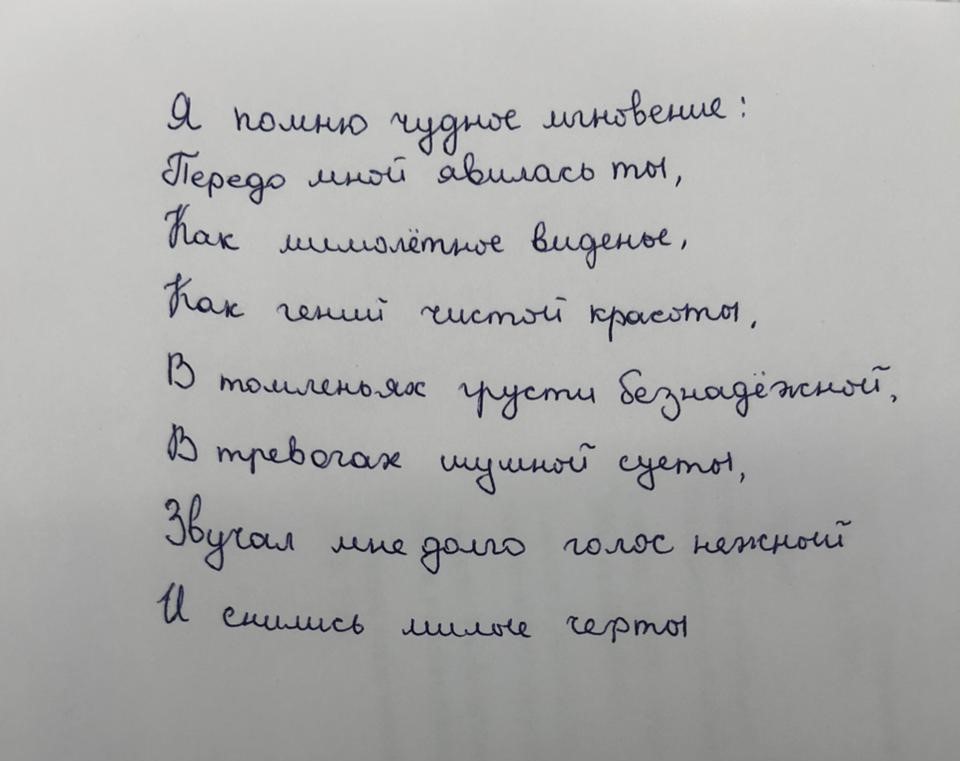 Я помню чудное мгновение:
Передо мной явилась ты,
Как мимолётное виденье,
Как гений чистой красоты,
В томленьях грусти безнадёжной,
В тревогах шумной суеты,
Звучал мне долго голос нежной
И снились милые черты